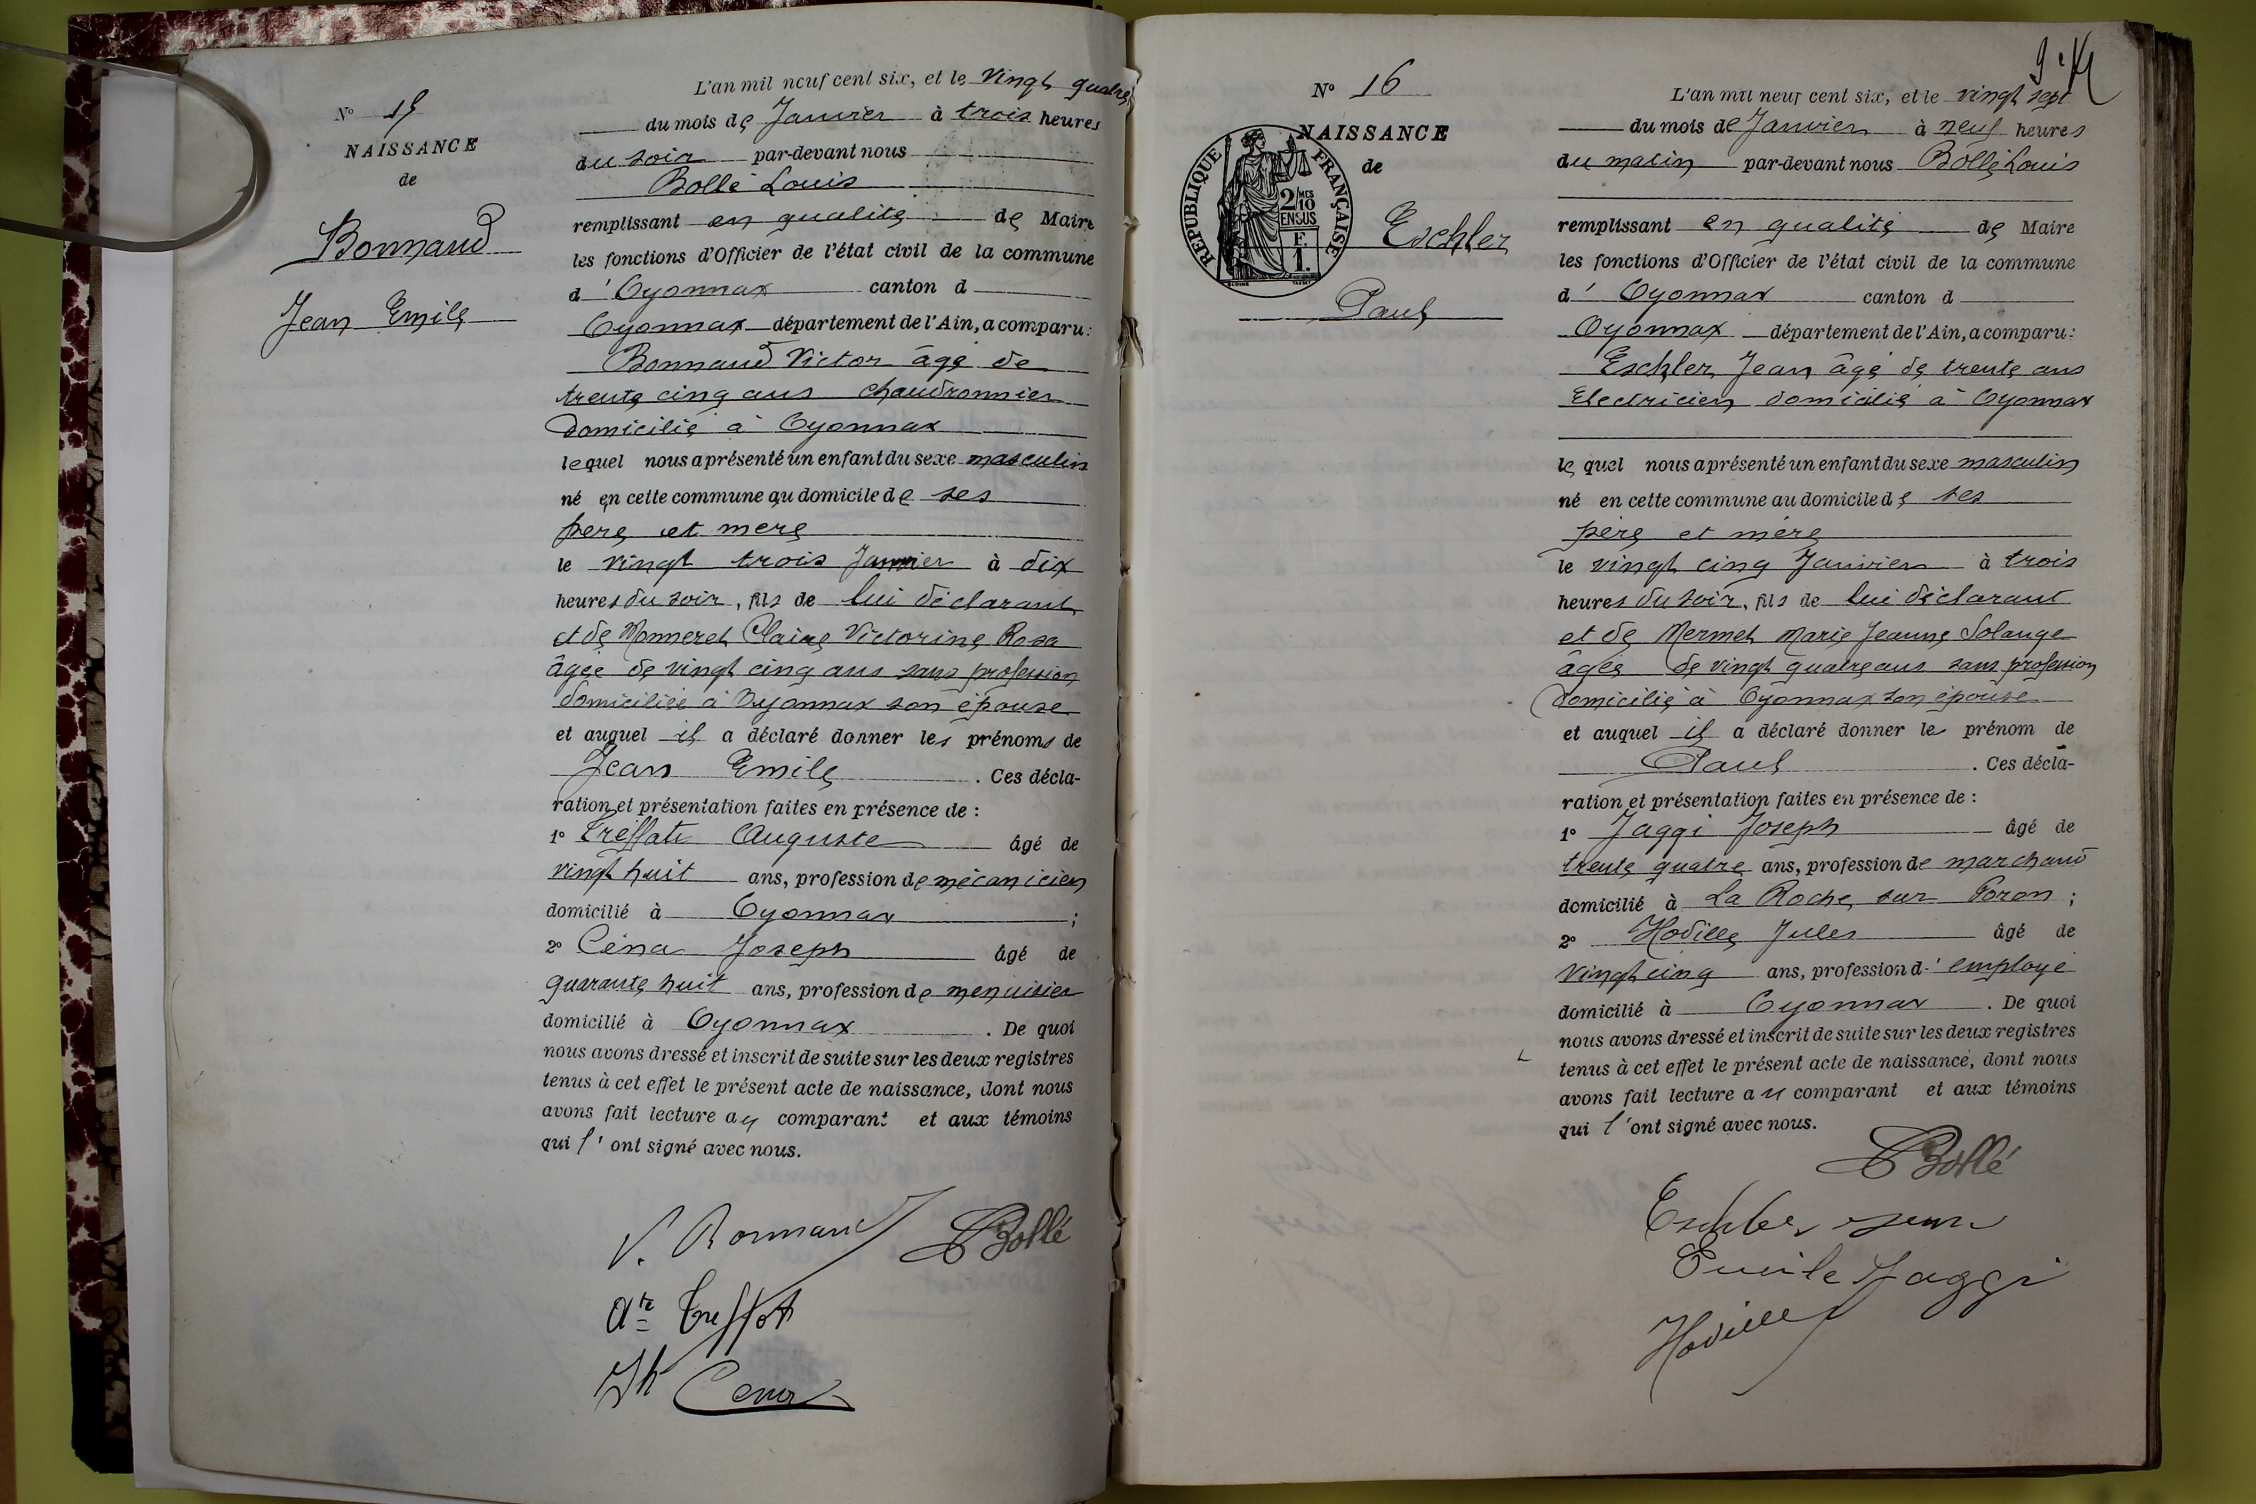 N° 15
NAISSANCE
de
Bonnaud
Jean Emile
L'an mil neuf cent six, et le vingt quatre
du mois de Janvier à trois heures
du soir par-devant nous
Bollé Louis
remplissant en qualité de Maire
les fonctions d'Officier de l'état civil de la commune
d' Oyonnax canton d
Oyonnax département de l'Ain, a comparu:
Bonnaud Victor âgé de
trente cinq ans chaudronnier
domicilié à Oyonnax
lequel nous a présenté un enfant du sexe masculin
né en cette commune au domicile de ses
père et mère
le vingt trois Janvier à dix
heures du soir, fils de lui déclarant
et de Monneret Claire Victorine Rosa
âgée de vingt cinq ans sans profession
domiciliée à Oyonnax son épouse
et auquel il a déclaré donner les prénoms de
Jean Emile . Ces décla-
ration et présentation faites en présence de :
1° Auguste âgé de
vingt huit ans, profession de mécanicien
domicilié à Oyonnax ;
2° Céna Joseph âgé de
quarante huit ans, profession de menuisier
domicilié à Oyonnax . De quoi
nous avons dressé et inscrit de suite sur les deux registres
tenus à cet effet le présent acte de naissance, dont nous
avons fait lecture au comparant et aux témoins
qui l' ont signé avec nous.
V. Bonnaud Bollé
Ate Treffot
Jh Cena
N° 16
NAISSANCE
de
RÉPUBLIQUE FRANÇAISE
2/10MES
EN SUS
F.
1.
Eschler
Paul
L'an mil neuf cent six, et le vingt sept
du mois de Janvier à neuf heures
du matin par-devant nous Bollé Louis
remplissant en qualité de Maire
les fonctions d'Officier de l'état civil de la commune
d' Oyonnax canton d
Oyonnax département de l'Ain, a comparu:
Eschler Jean âgé de trente ans
Electricien domicilié à Oyonnax
le quel nous a présenté un enfant du sexe masculin
né en cette commune au domicile de ses
père et mère
le vingt cinq Janvier à trois
heures du soir, fils de lui déclarant
et de Mermet Marie Jeanne Solange
âgée de vingt quatre ans sans profession
domicilié à Oyonnax son épouse
et auquel il a déclaré donner le prénom de
Paul . Ces décla-
ration et présentation faites en présence de :
1° Jaggi Joseph âgé de
trente quatre ans, profession de marchand
domicilié à La Roche sur Foron ;
2° Hodille Jules âgé de
vingt cinq ans, profession d' employé
domicilié à Oyonnax . De quoi
nous avons dressé et inscrit de suite sur les deux registres
tenus à cet effet le présent acte de naissance, dont nous
avons fait lecture au comparant et aux témoins
qui l' ont signé avec nous.
Bollé
Eschler Jean
Emile Jaggi
Hodille